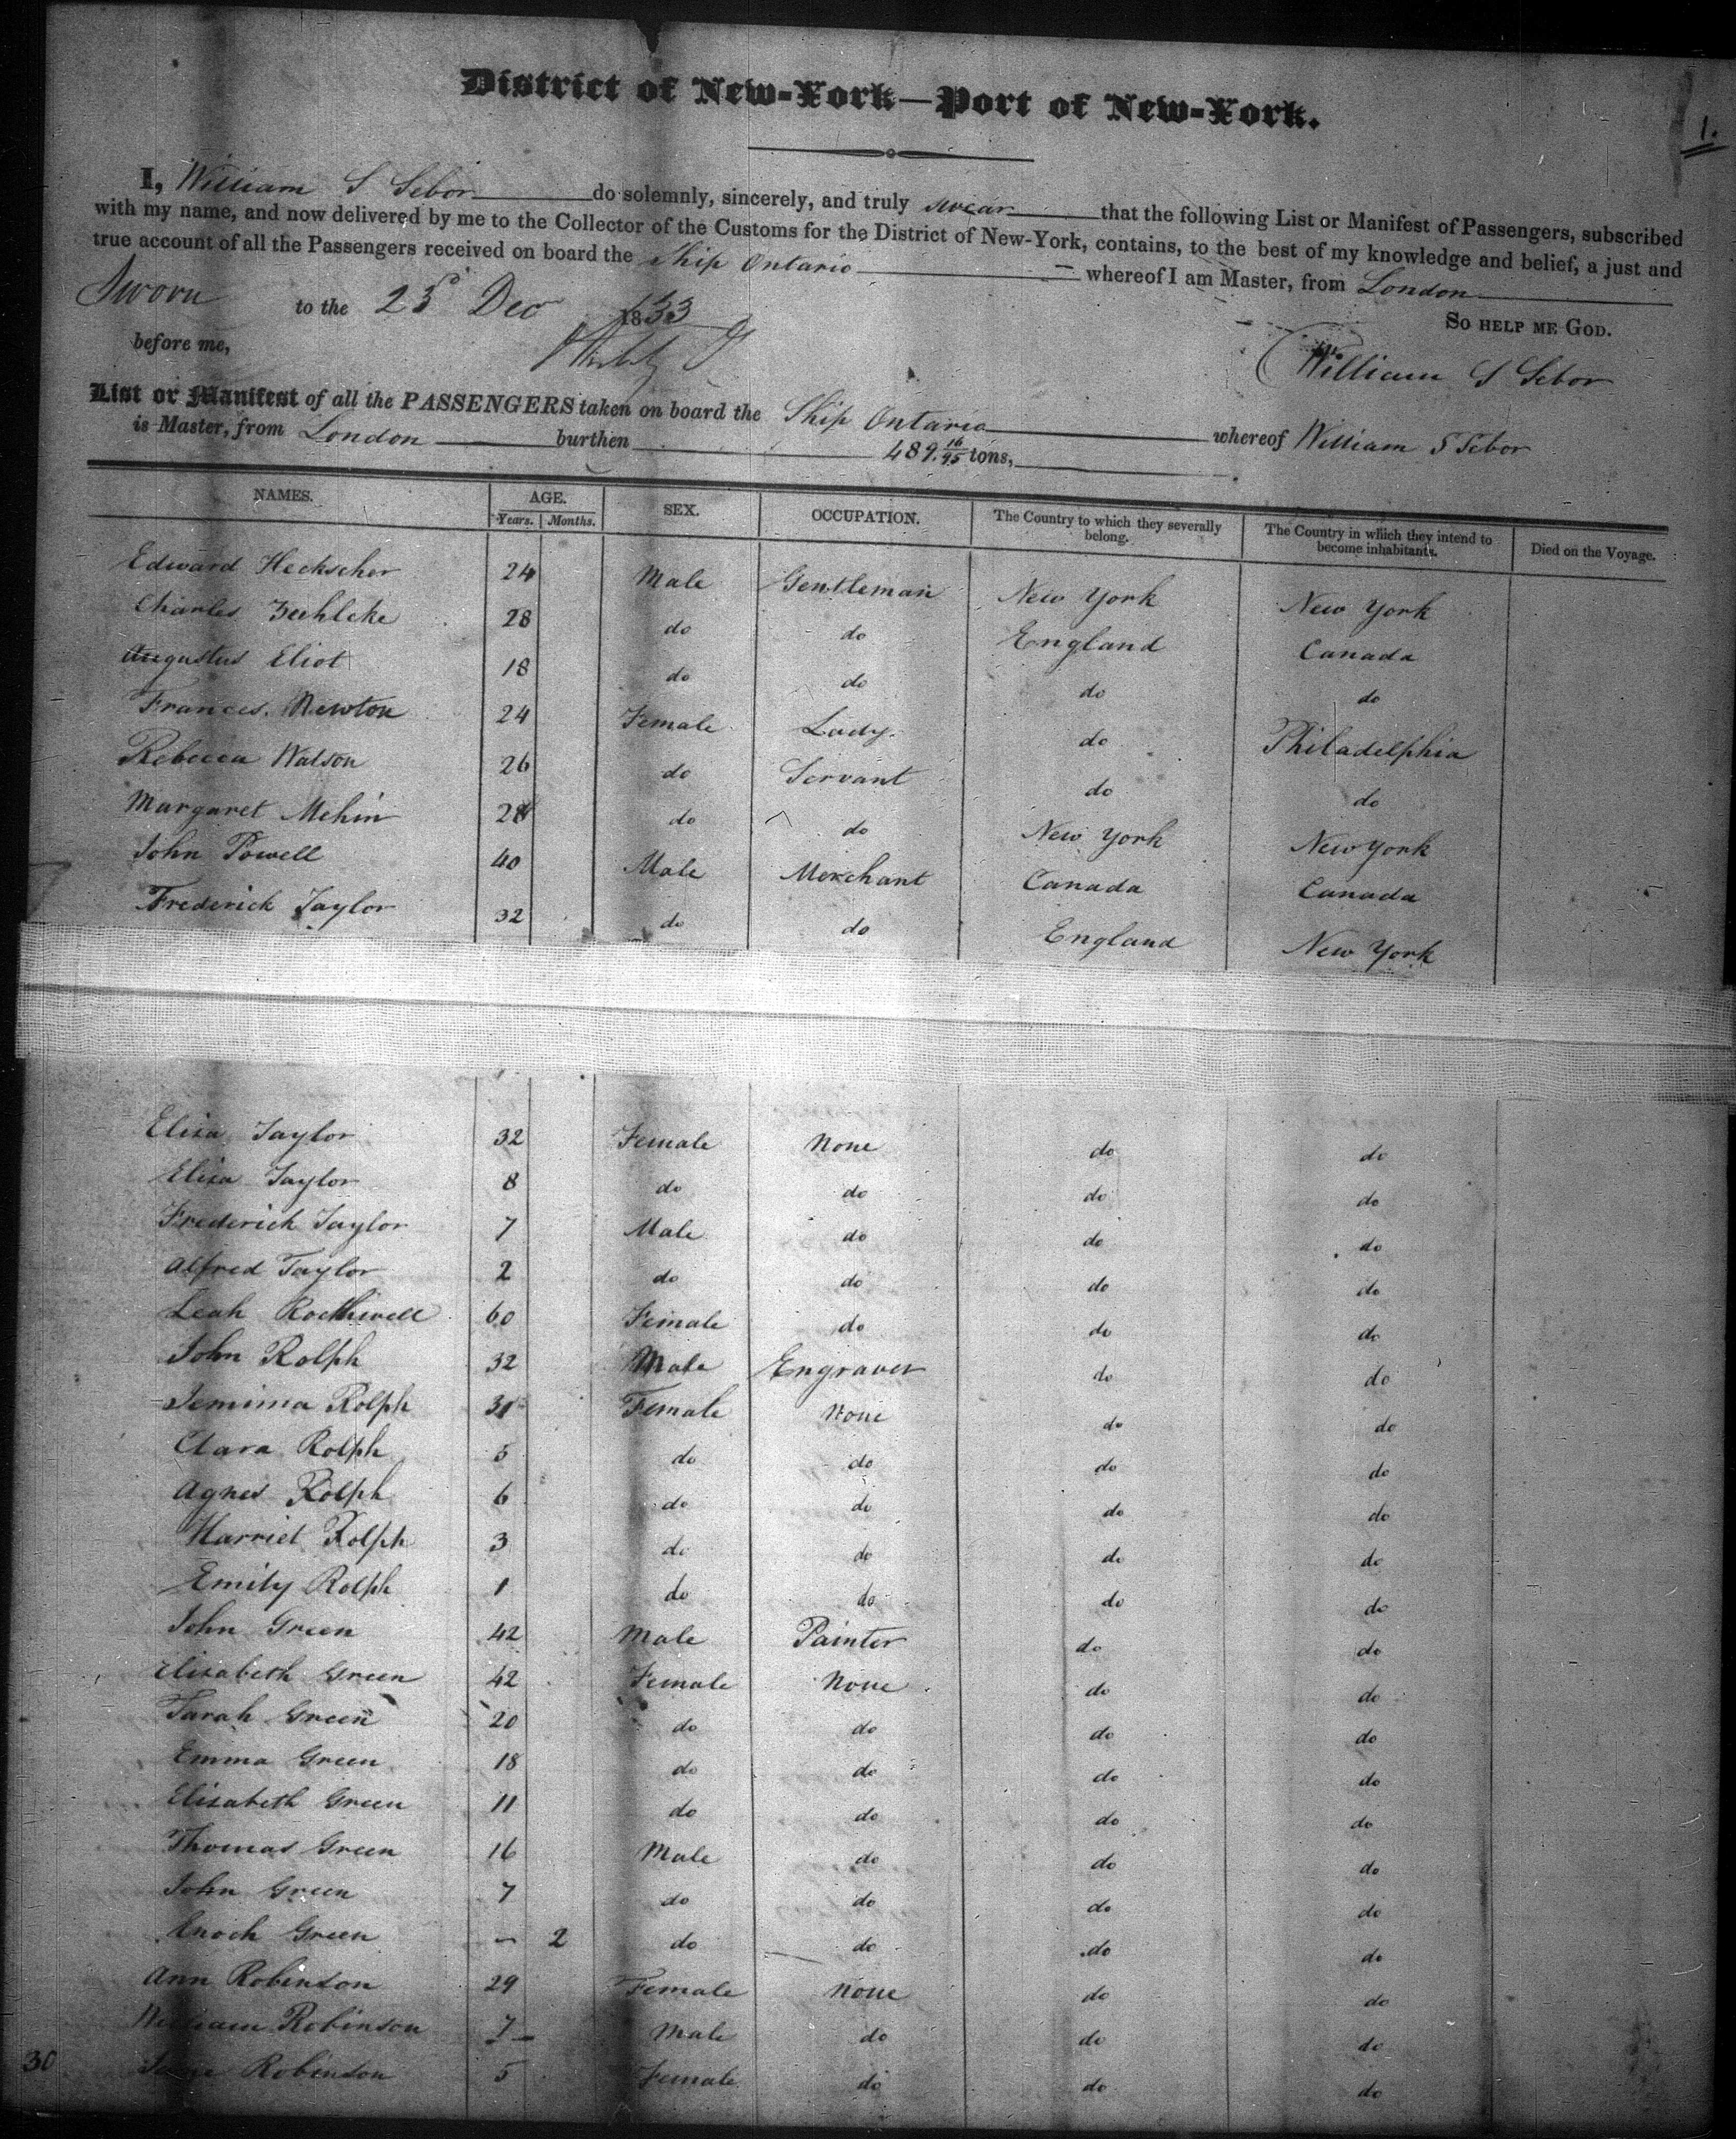 District of New-York—Port of New-York.
1.
I, William S Sebor do solemnly, sincerely, and truly swear that the following List or Manifest of Passengers, subscribed
with my name, and now delivered by me to the Collector of the Customs for the District of New-York, contains, to the best of my knowledge and belief, a just and
true account of all the Passengers received on board the Ship Ontario whereof I am Master, from London
Sworn to the 23d Dec 1833 So help me God.
before me,
William S Sebor
List or Manifest of all the PASSENGERS taken on board the Ship Ontario whereof William S Sebor
is Master, from London burthen 489. 16/95 tons,
NAMES. AGE. SEX. OCCUPATION. The Country to which they severally belong. The Country in which they intend to become inhabitants. Died on the Voyage.
Years. Months.
Edward Heckscher 24 Male Gentleman New York New York
Charles 28 do do England Canada
Augustus Eliot 18 do do do do
Frances Newton 24 Female Lady. do Philadelphia
Rebecca Watson 26 do Servant do do
Margaret Mehin do do New York New York
John Powell 40 Male Merchant Canada Canada
Frederick Taylor 32 do do England New York
Eliza Taylor 32 Female None do do
Eliza Taylor 8 do do do do
Frederick Taylor 7 Male do do do
Alfred Taylor 2 do do do do
Leah Rockliwell 60 Female do do do
John Rolph 32 Male Engraver do do
Jemima Rolph 31 Female None do do
Clara Rolph 5 do do do do
Agnes Rolph 6 do do do do
Harriet Rolph 3 do do do do
Emily Rolph 1 do do do do
John Green 42 Male Painter do do
Elizabeth Green 42 Female None do do
Sarah Green 20 do do do do
Emma Green 18 do do do do
Elizabeth Green 11 do do do do
Thomas Green 16 Male do do do
John Green 7 do do do do
Enoch Green – 2 do do do do
Ann Robinson 29 Female None do do
William Robinson 7 Male do do do
30 Robinson 5 Female do do do